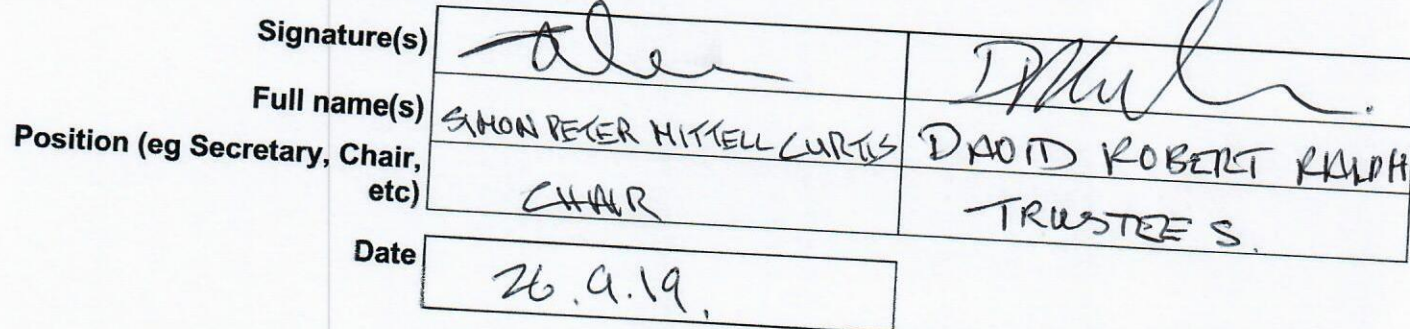 Signature(s)
Full name(s) SIMON PETER MITTELL CURTIS DAVID ROBERT RALPH
Position (eg Secretary, Chair,
etc) CHAIR TRUSTEES.
Date 26.9.19.